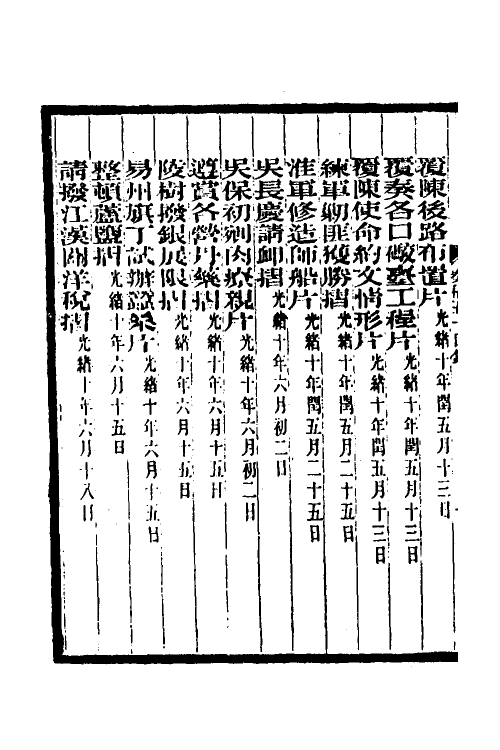 覆陳後路布置片光緒十年閏五月十三日
覆奏各口礮臺工程片光緒十年閏五月十三日
覆陳使命約文情形片光緒十年閏五月十三日
練軍剿匪獲勝摺光緒十年閏五月二十五日
淮軍修造師船片光緒十年閏五月二十五日
吳長慶請卹摺光緒十年六月初二日
吳保初刲肉療親片光緒十年六月初二日
遵賞各營丹藥摺光緒十年六月十五日
陵樹撥銀展限摺光緒十年六月十五日
易州旗丁試辦蠶桑片光緒十年六月十五日
整頓蘆鹽摺光緒十年六月十五日
請撥江漢兩洋稅摺光緒十年六月十八日